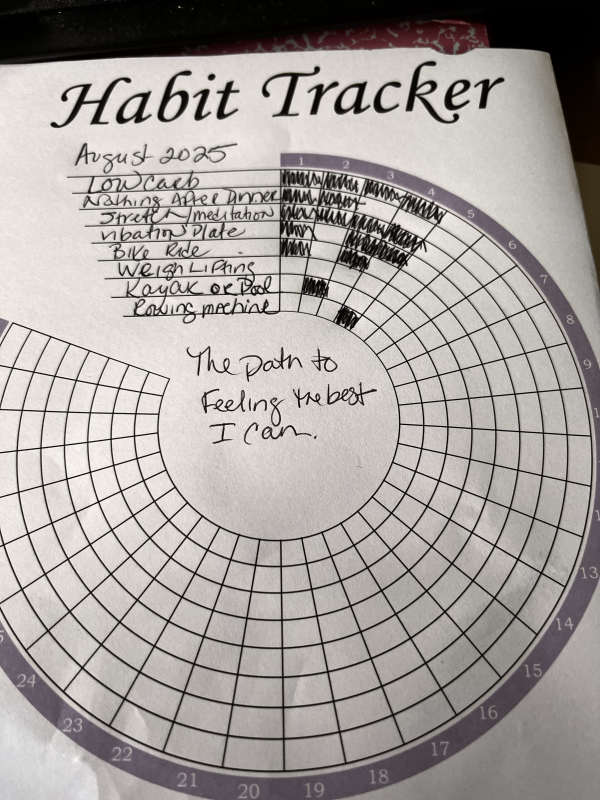 Habit Tracker
August 2025
Low carb
Nothing After Dinner
Stretch/meditation
Vibation Plate
Bike Ride
Weigh Lifting
Kayak or Pool
Rowing machine
The path to
Feeling the best
I can.
1
2
3
4
5
6
7
8
9
13
14
15
16
17
18
19
20
21
22
23
24